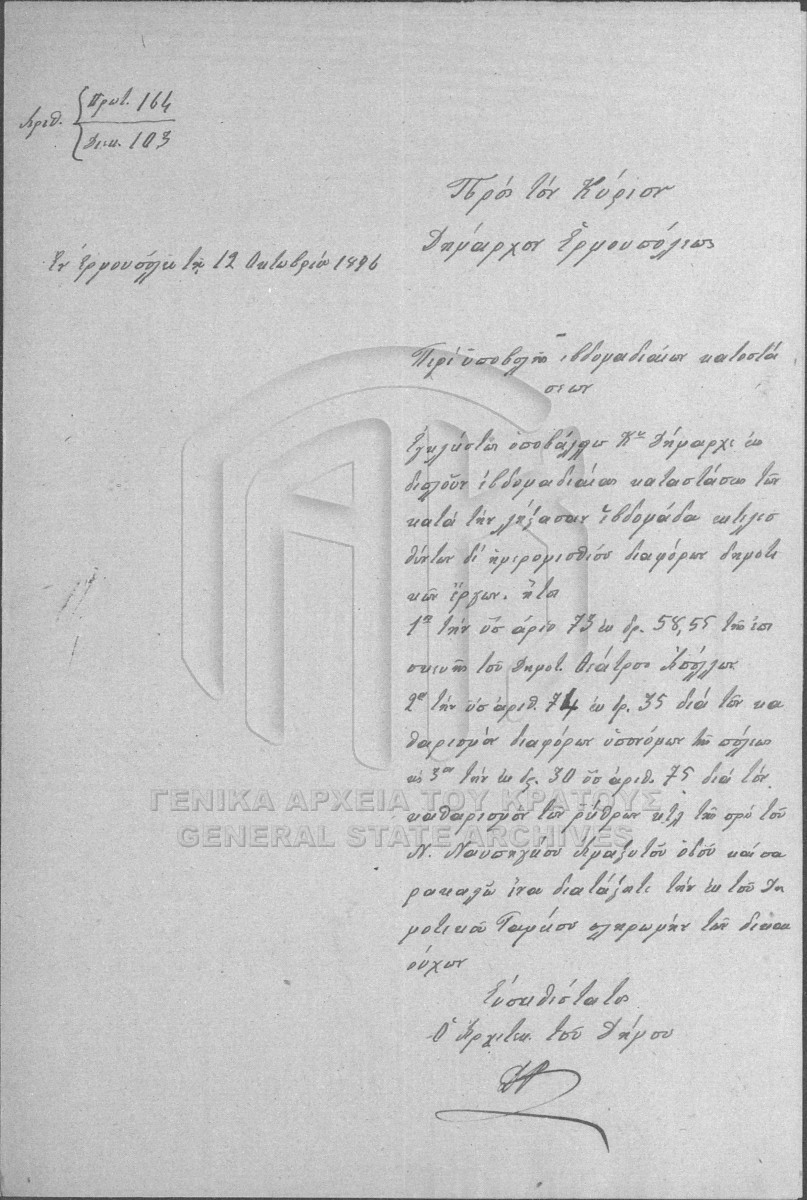 Αριθ. { Πρωτ. 164
Διεκ. 103
Πρός τόν Κύριον
Δήμαρχον Ἑρμουπόλεως
Ἐν Ἑρμουπόλει τῇ 12 Οκτωβρίου 1896
Περί ὑποβολῆς ἑβδομαδιαίων καταστά
σεων
Ἐγκλείστως ὑποβάλλω Κε Δήμαρχε εἰς
διπλοῦν ἑβδομαδιαίας καταστάσεις τῶν
κατά τήν λήξασαν ἑβδομάδα εκτελεσ
θέντων δι' ἡμερομισθίου διαφόρων δημοτι
κῶν ἔργων. ἤτοι
1ον τήν ὑπ' ἀριθ 73 ἐκ δρ. 58,55 τῆς ἐπι
σκευῆς τοῦ Δημοτ. Θεάτρου Ἀπόλλων
2ον τήν ὑπ' ἀριθ. 74 ἐκ δρ. 35 διά τόν κα
θαρισμόν διαφόρων ὑπονόμων τῆς πόλεως
κ 3ον τήν ἐκ δρ. 30 ὑπ' ἀριθ. 75 διά τόν
καθαρισμόν τῶν ρείθρων κτλ τῆς πρό τοῦ
Ν. Ναυπηγείου ἁμαξιτοῦ ὁδοῦ καί πα
ρακαλῶ ἵνα διατάξητε τήν ἐκ τοῦ Δη
μοτικοῦ Ταμείου πληρωμήν τῶν δικαι
ούχων
Εὐπειθέστατος
Ὁ Ἀρχιτεκ. τοῦ Δήμου
ΓΕΝΙΚΑ ΑΡΧΕΙΑ ΤΟΥ ΚΡΑΤΟΥΣ
GENERAL STATE ARCHIVES